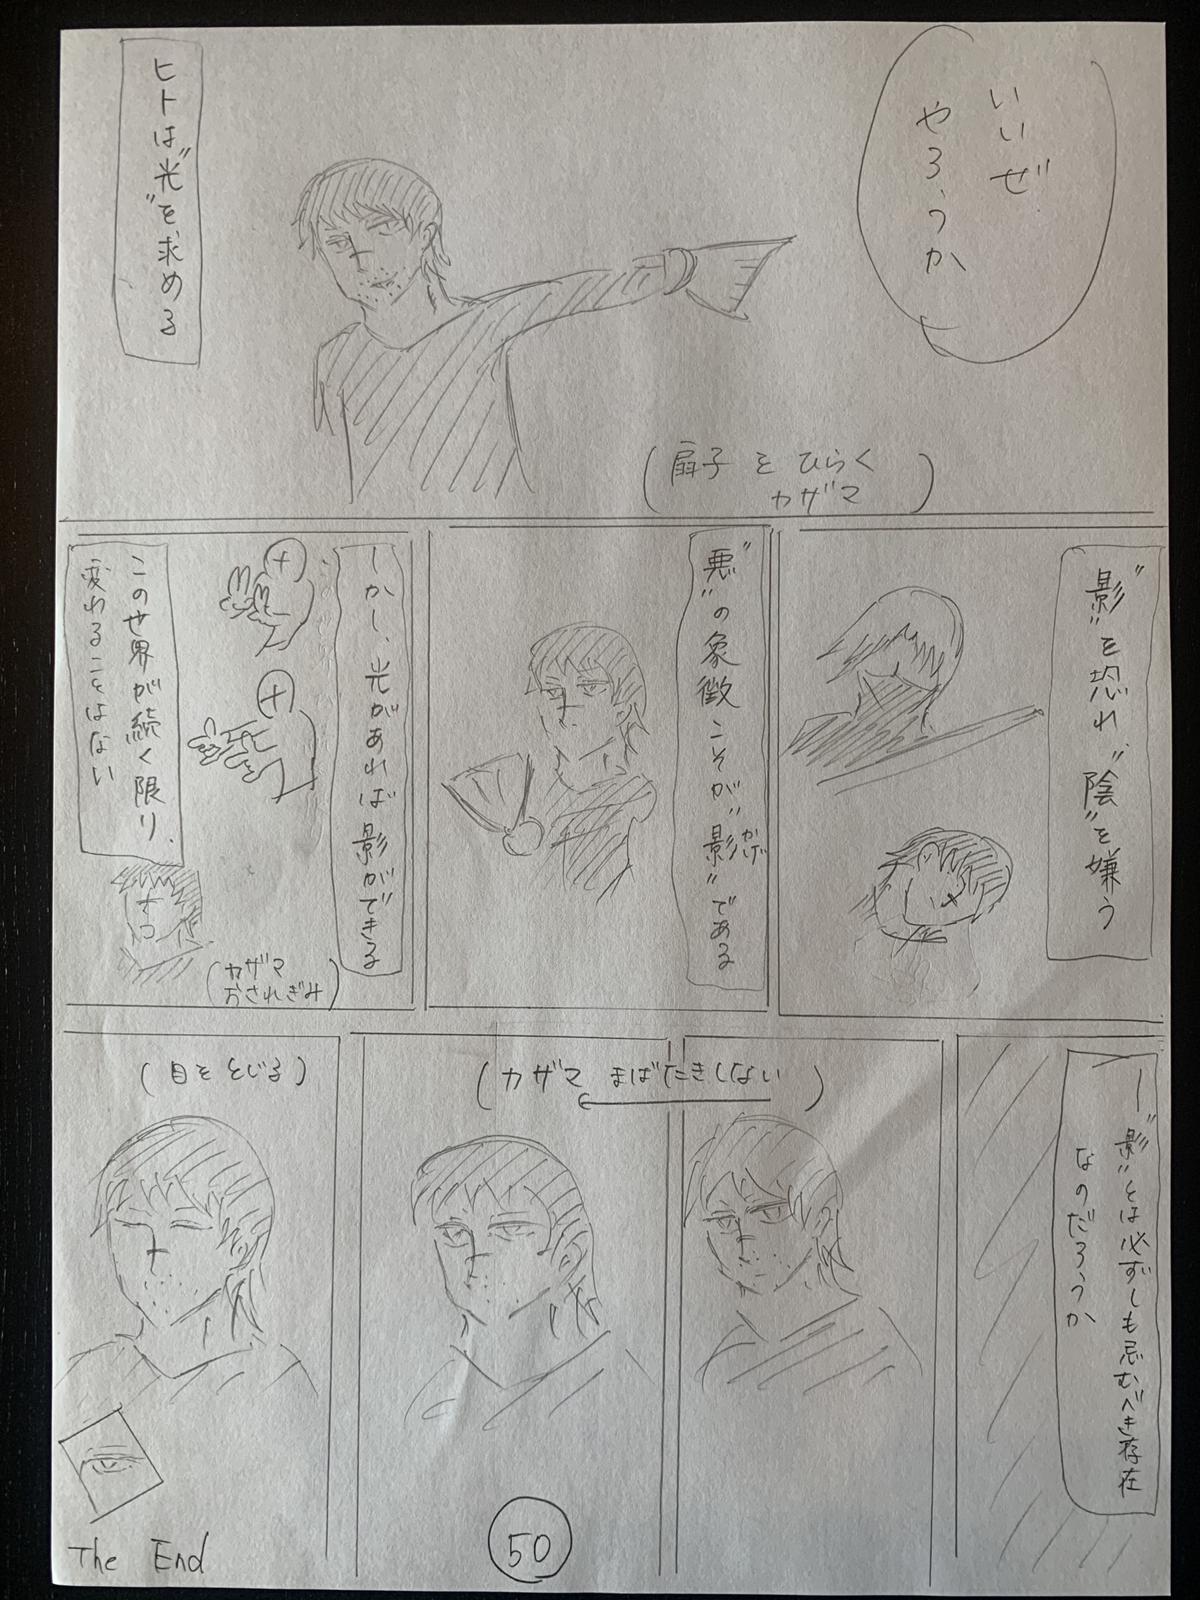 いいぜ
やろうか
ヒトは"光"を求める
(扇子をひらく
カザマ)
"影"を恐れ"陰"を嫌う
"悪"の象徴こそが"影"である
かげ
しかし、光があれば影ができる
この世界が続く限り、
変わることはない
(カザマ
おされぎみ)
―"影"とは必ずしも忌むべき存在
なのだろうか
(カザマ まばたきしない)
(目をとじる)
The End
50